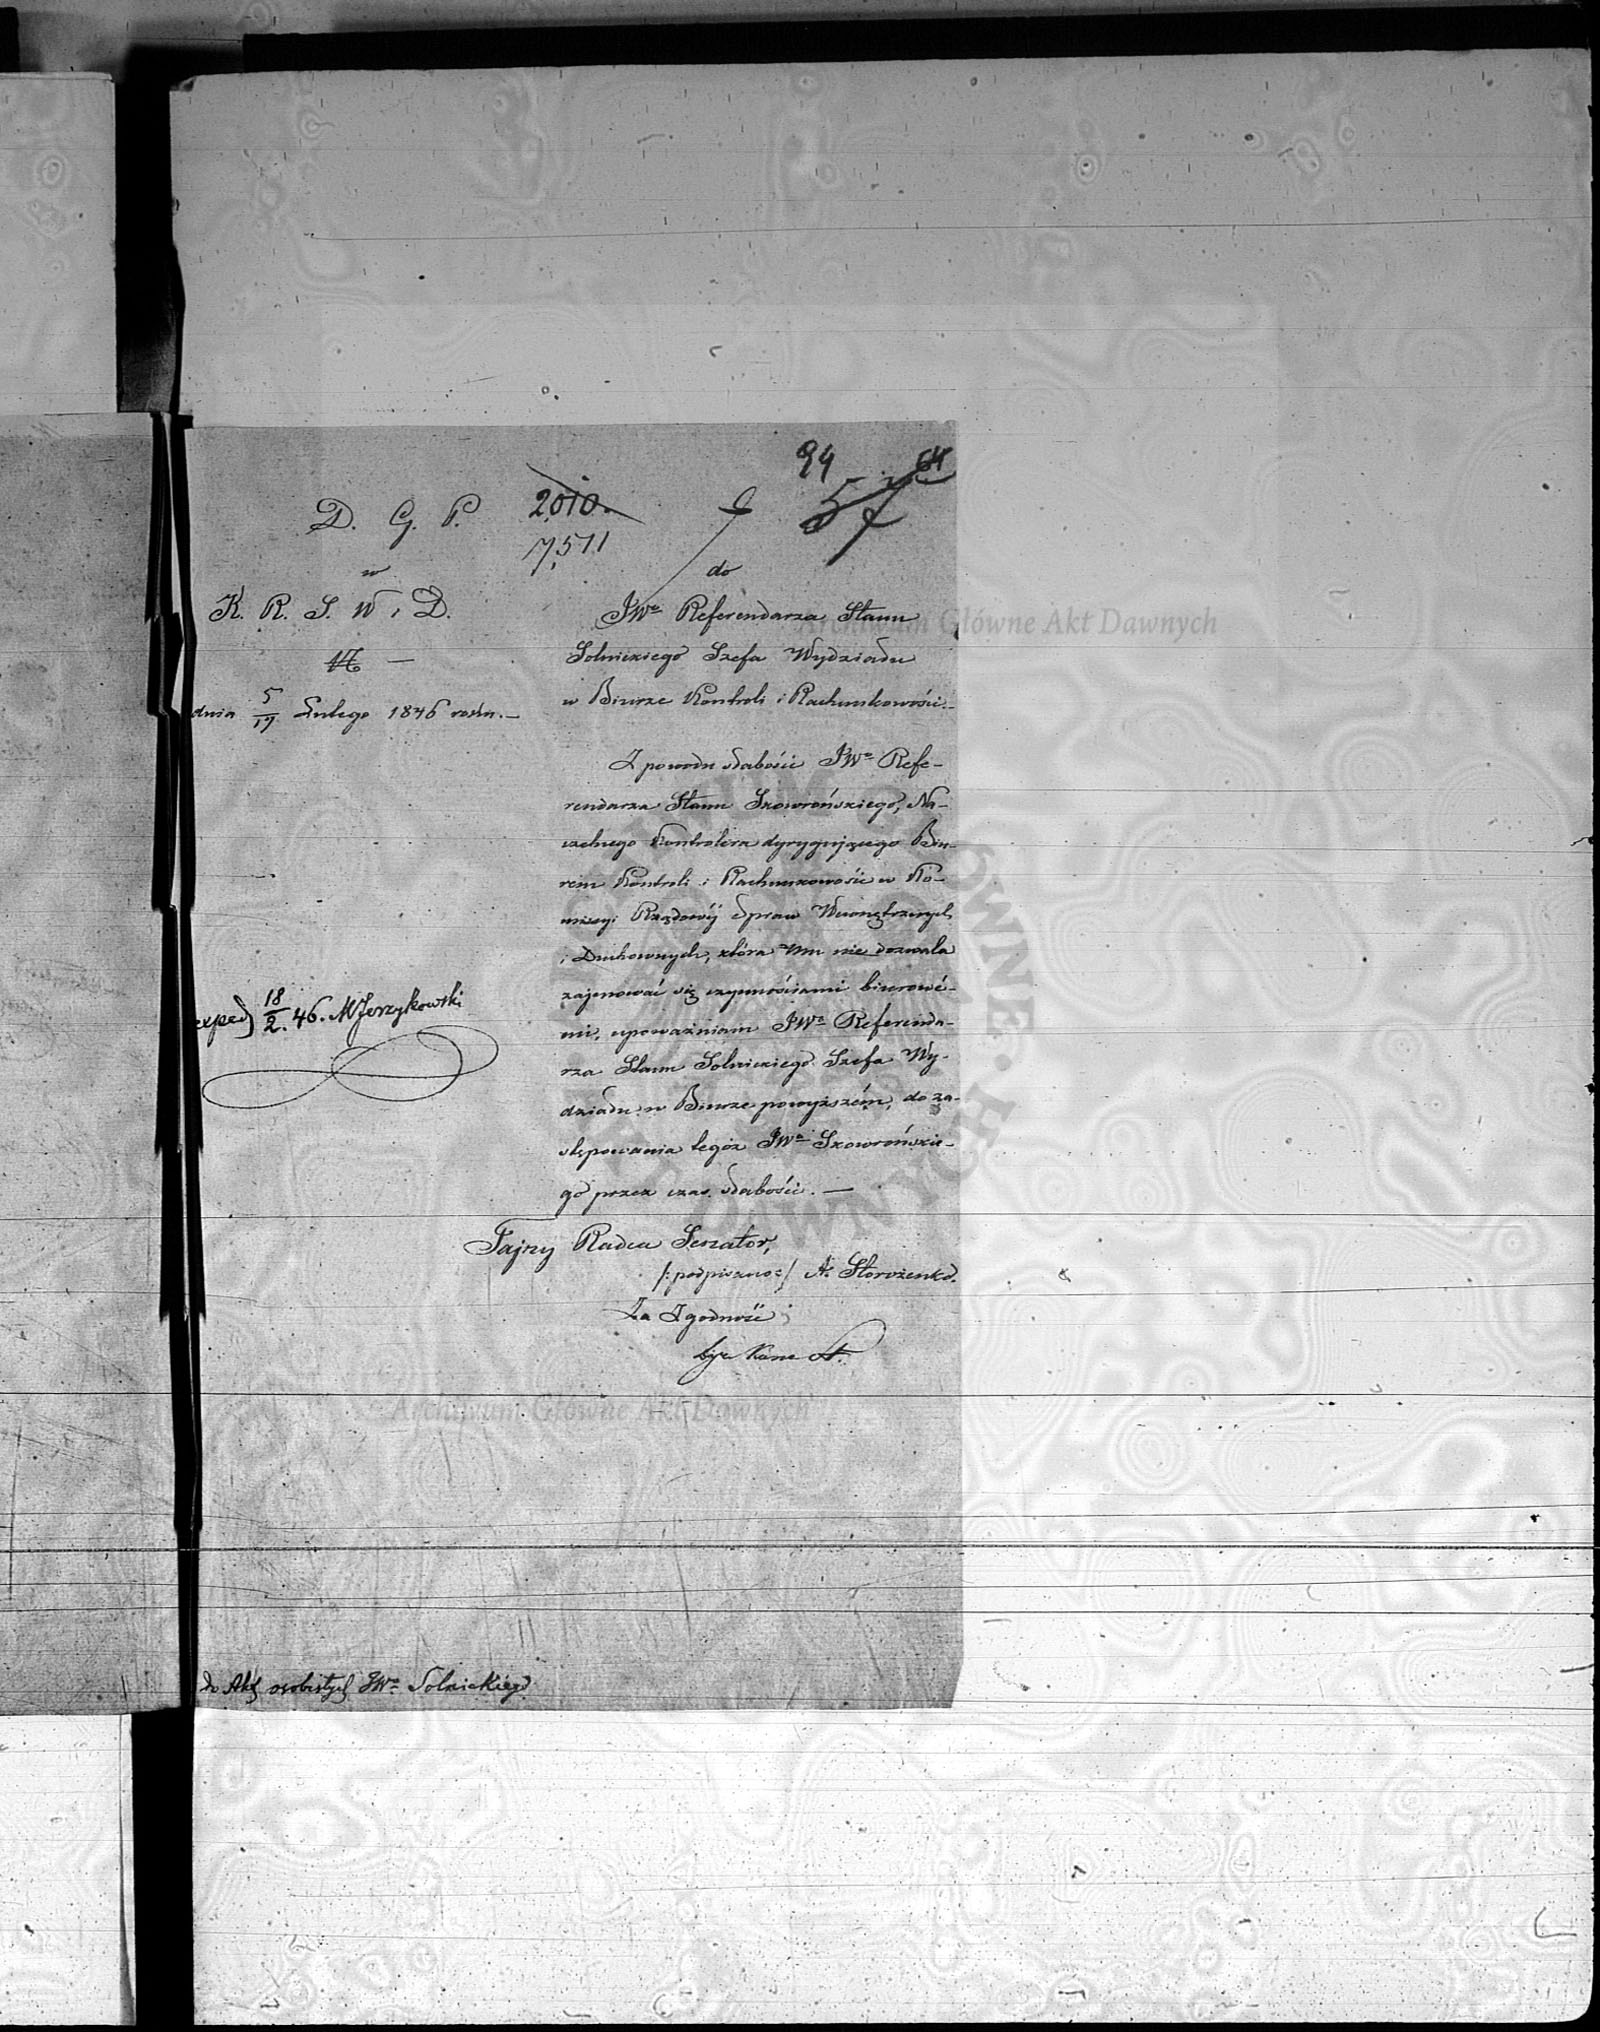 94
64
57
D. G. P.
2010.
7,571
w
K. R. S. W. i D.
dnia 5/17 Lutego 1846 roku.—
do
JWo Referendarza Stanu
Solnickiego Szefa Wydziału
w Biurze Kontroli i Rachunkowości.—
Z powodu słabości JWo Refe-
rendarza Stanu Skowrońskiego, Na-
czelnego Kontrolera dyrygującego Biu-
rem Kontroli i Rachunkowości w Ko-
missyi Rządowéj Spraw Wewnętrznych
i Duchownych, która Mu nie dozwala
zajmować się czynnościami biurowé-
mi, upoważniam JWo Referenda-
rza Stanu Solnickiego Szefa Wy-
działu w Biurze powyższém, do za-
stępowania tegoż JWo Skowrońskie-
go przez czas słabości. —
exped 18/2. 46. M Jerzykowski
Tajny Radca Senator,
/: podpisano :/ A. Storożenko.
Za Zgodność
do Akt osobistych JWo Solnickiego
Archiwum Główne Akt Dawnych
Archiwum Główne Akt Dawnych
ARCHIWUM GŁÓWNE AKT DAWNYCH